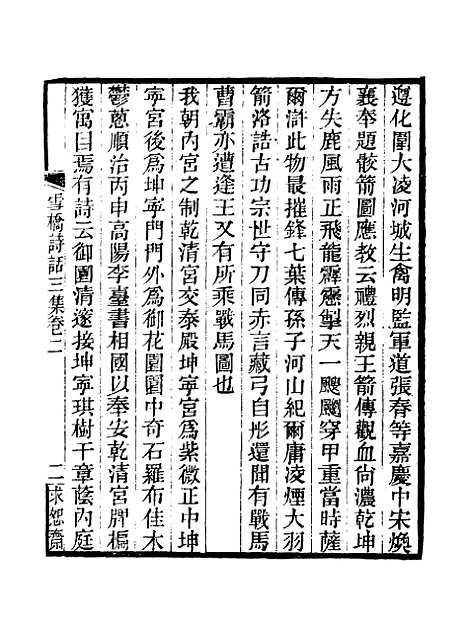 遵化圍大凌河城生禽明監軍道張春等嘉慶中宋煥
襄奉題骹箭圖應教云禮烈親王箭傳觀血尙濃乾坤
方失鹿風雨正飛龍霹靂掣天一颼飀穿甲重當時薩
爾滸此物最摧鋒七葉傳孫子河山紀爾庸凌煙大羽
箭洛誥古功宗世守刀同赤言藏弓自彤還聞有戰馬
曹霸亦遭逢王又有所乘戰馬圖也
我朝內宮之制乾清宮交泰殿坤寧宮爲紫微正中坤
寧宮後爲坤寧門門外爲御花園園中奇石羅布佳木
鬱蔥順治丙申高陽李臺書相國以奉安乾清宮牌楄
獲寓目焉有詩云御園清邃接坤寧琪樹千章蔭內庭
雪橋詩話三集卷二
二求恕齋